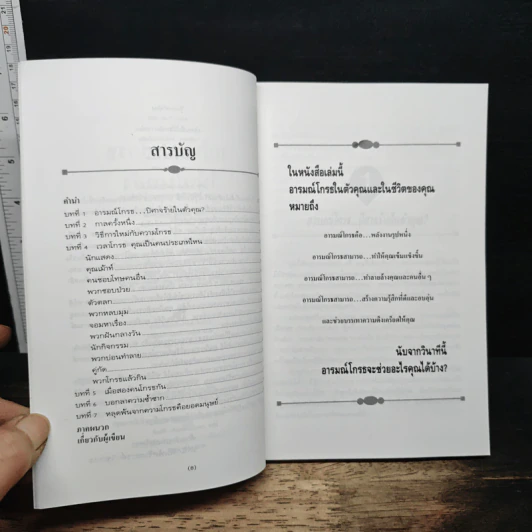 สารบัญ
คำนำ
บทที่ 1 อารมณ์โกรธ...ปีศาจร้ายในตัวคุณ?
บทที่ 2 กาลครั้งหนึ่ง
บทที่ 3 วิธีการใหม่กับความโกรธ
บทที่ 4 เวลาโกรธ คุณเป็นคนประเภทไหน
นักแสดง
คุณเม้าท์
คนชอบโทษคนอื่น
พวกชอบป่วย
ตัวตลก
พวกหลบมุม
จอมหาเรื่อง
พวกฝันกลางวัน
นักกิจกรรม
พวกบ่อนทำลาย
คู่กัด
พวกโกรธแล้วกิน
บทที่ 5 เมื่อสองคนโกรธกัน
บทที่ 6 บอกลาความซ้ำซาก
บทที่ 7 หลุดพ้นจากความโกรธคือยอดมนุษย์
ภาคผนวก
เกี่ยวกับผู้เขียน
ในหนังสือเล่มนี้
อารมณ์โกรธในตัวคุณและในชีวิตของคุณ
หมายถึง
อารมณ์โกรธคือ...พลังงานรูปหนึ่ง
อารมณ์โกรธสามารถ...ทำให้คุณเข้มแข็งขึ้น
อารมณ์โกรธสามารถ...ทำลายล้างคุณและคนอื่น ๆ
อารมณ์โกรธสามารถ...สร้างความรู้สึกที่ดีและอบอุ่น
และช่วยบรรเทาความตึงเครียดให้คุณ
นับจากวินาทีนี้
อารมณ์โกรธจะช่วยอะไรคุณได้บ้าง?